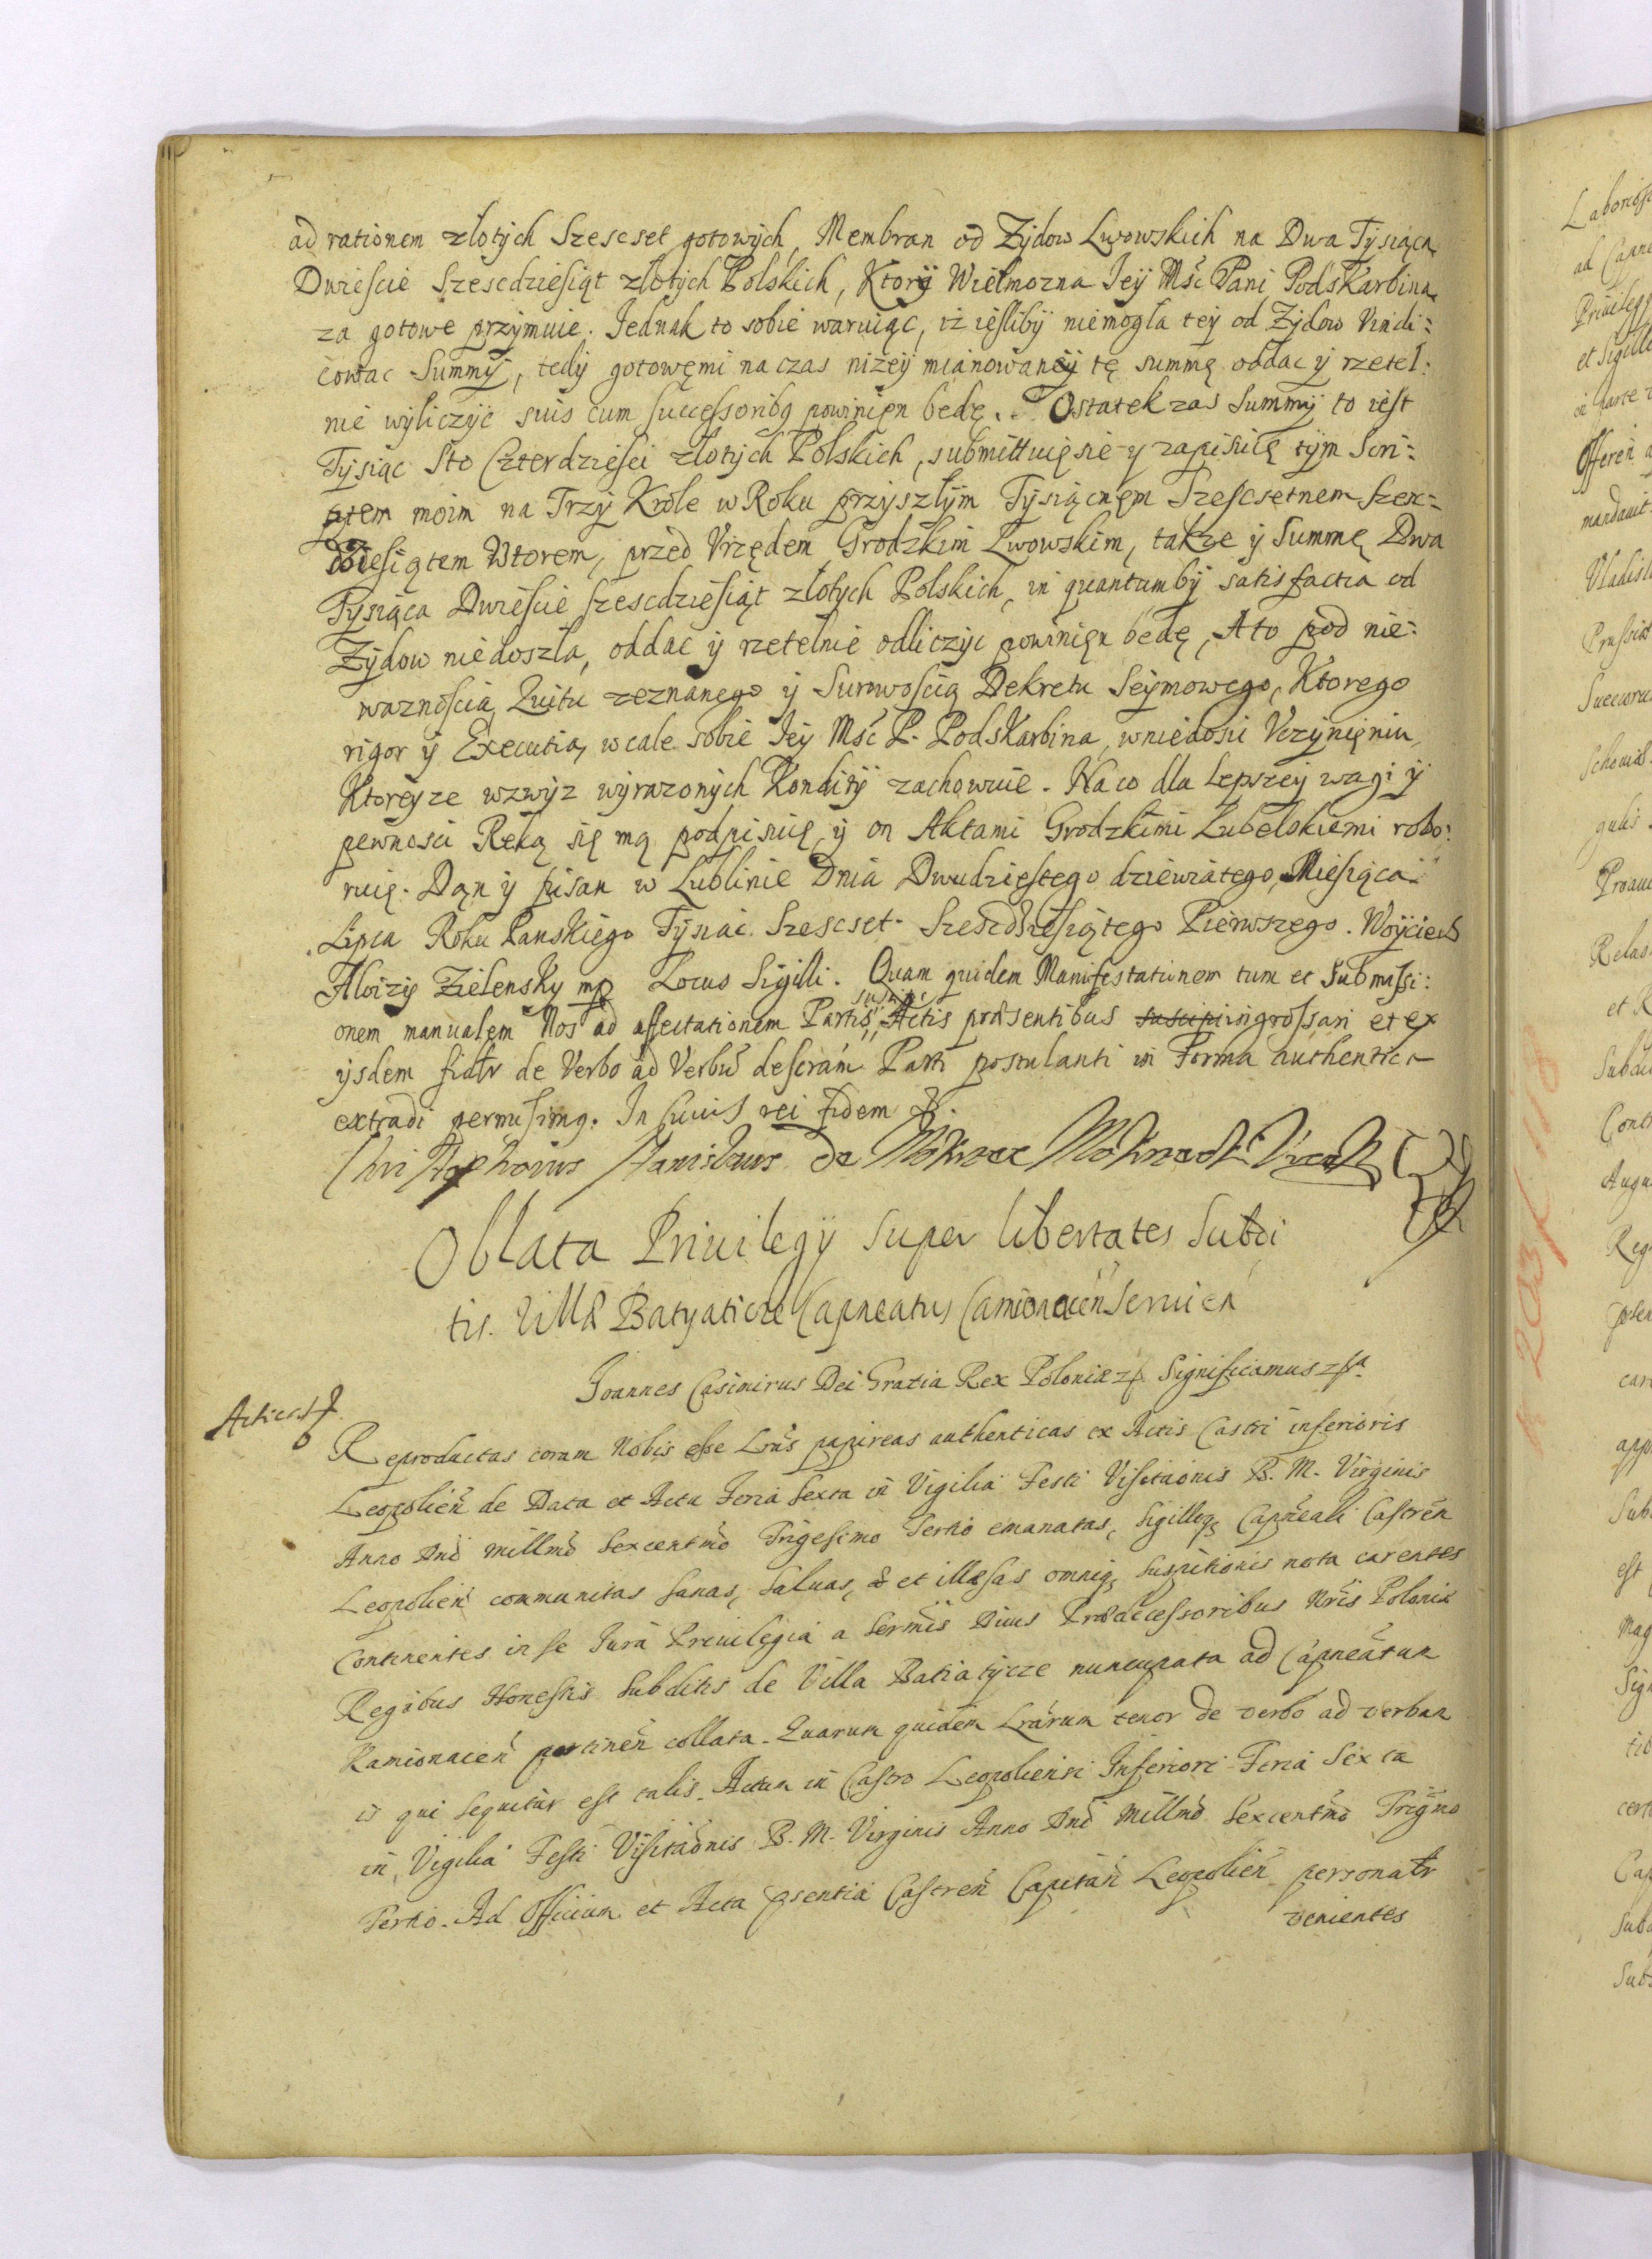 ad rationem złotych Szescset gotowych, Membran od Zydow Lwowskich na Dwa Tysiąca
Dwiescie Szescdziesiąt złotych Polskich, Ktory Wielmozna Jey Mść Pani Podskarbina
za gotowe przymuie. Jednak to sobie waruiąc, iz iesliby niemogła tey od Zydow Vindi:
cowac Summy, tedy gotowęmi na czas nizey mianowany tę summę oddac y rzetel:
nie wyliczyć suis cum successoribq powinięn będę. Ostatek zas Summy to iest
Tysiąc Sto Czterdziesci złotych Polskich, submittuię sie y zapisuię tym Scri:
ptem moim na Trzy Krole w Roku przyszłym Tysiącnęm Szescsetnem Szesc=
dziesiątem Wtorem, przed Vrzędem Grodzkim Lwowskim, także y Summę Dwa
Tysiąca Dwiescie szescdziesiąt złotych Polskich, in quantumby satisfactia od
Zydow niedoszła, oddac y rzetelnie odliczyc powinięn będę, A to pod nie:
waznoscią Quitu zeznanego y Surowoscią Dekretu Seymowego, Ktorego
rigor y Executią wcale sobie Jey Mść P. Podskarbina, wniedosic Vczynięniu
Ktoreyze wzwyz wyrazonych Kondity zachowuie. Na co dla Lepszey wagi y
pewnosci Ręką się mą podpisuię, y on Aktami Grodzkimi Lubelskiemi robo:
ruię. Dan y pisan w Lublinie Dnia Dwudziestego dziewiatego, Miesiąca
Lipca Roku Panskiego Tysiac Szescset Szescdziesiątego Pierwszego. Woyciech
Aloizy Zielensky mp Locus Sigilli. Quam quidem Manifestationem tum et Submissi:
onem manualem Nos ad affectationem Partis suscipi Actis præsentibus suscipi ingrossari et ex
ijsdem fidtr de Verbo ad Verbū descrām Parti postulanti in Forma authentica
extradi permisimq. In Cuius rei fidem &.
Christophorus Stanislaus de
Oblata Priuilegÿ super libertates Subdi
tis Villæ Batyaticze Capneatus Camionacen̄ Seruien
Joannes Casimirus Dei Gratia Rex Poloniæ Significamus
Reproductas coram Nobis esse Lrās papireas authenticas ex Actis Castri inferioris
Leopolien̄ de Data et Actu Feria Sexta in Vigilia Festi Visitaōnis B. M. Virginis
Anno Dnī millmō Sexcentmō Trigesimo Tertio emanatas, Sigilloq Capneali Castren̄
Leopolien̄ communitas Sanas, Saluas, & et illæsas omniq Suspitionis nota carentes
Continentes in se Jura Priuilegia a Sermīs Diuis Prædecessoribus Nrīs Poloniæ
Regibus Honestis Subditis de Villa Batiatycze nuncupata ad Capneātum
Kamionacen̄ pertinen̄ collata. Quarum quidem Lrārum tenor de verbo ad verbum
is qui sequitur est talis. Actum in Castro Leopoliensi Inferiori Feria Sexta
in Vigilia Festi Visitaōnis B. M. Virginis Anno Dnī Millmō Sexcentmō Trigmō
Tertio. Ad Officium et Acta psentia Castren̄ Capitan̄ Leopolien̄ personatr
venientes